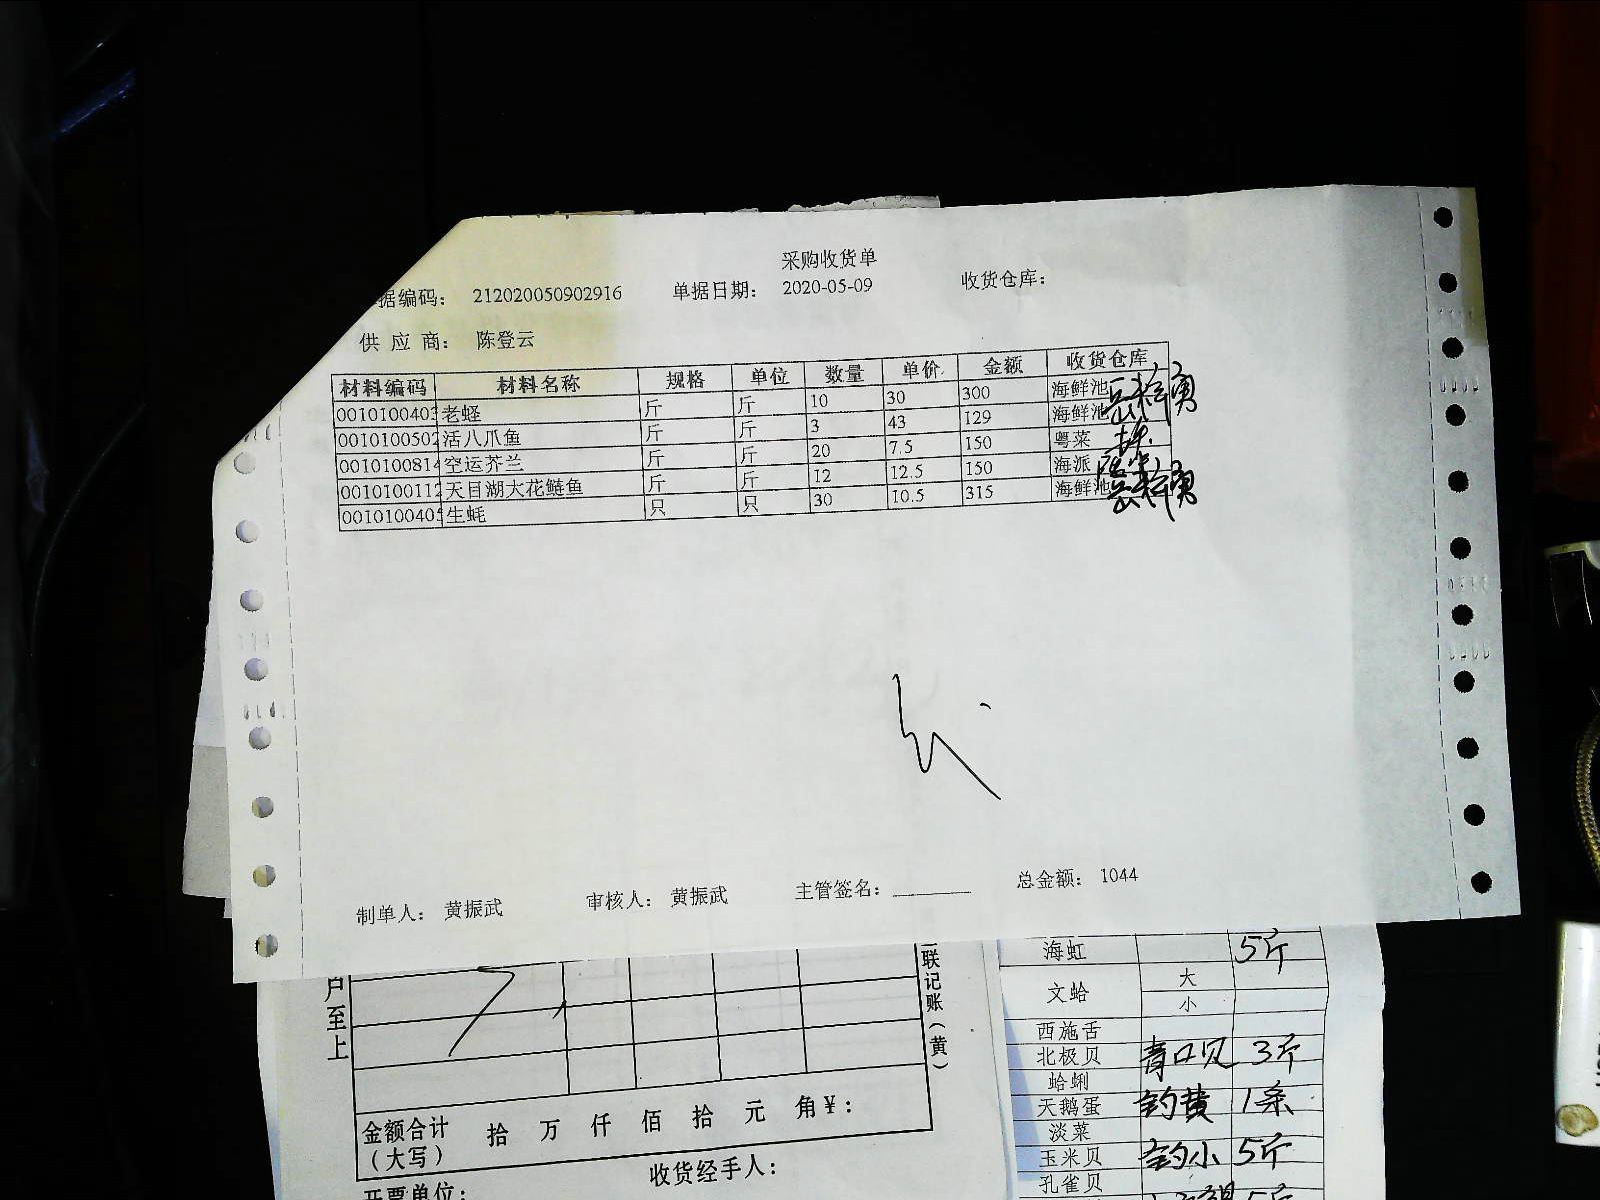 采购收货单
据编码： 212020050902916 单据日期： 2020-05-09 收货仓库：
供 应 商： 陈登云
材料编码 材料名称 规格 单位 数量 单价 金额 收货仓库
001010040 老蛏 斤 斤 10 30 300 海鲜池
001010050 活八爪鱼 斤 斤 3 43 129 海鲜池
001010081 空运芥兰 斤 斤 20 7.5 150 粤菜
001010011 天目湖大花鲢鱼 斤 斤 12 12.5 150 海派
001010040 生蚝 只 只 30 10.5 315 海鲜池
制单人： 黄振武 审核人： 黄振武 主管签名： 总金额： 1044
户至上
联记账（黄）
金额合计（大写） 拾 万 仟 佰 拾 元 角￥：
收货经手人：
开票单位：
海虹 5斤
文蛤 大
小
西施舌
北极贝 青口贝 3斤
蛤蜊
天鹅蛋 钓黄 1条
淡菜
玉米贝 钓小 5斤
孔雀贝 5斤